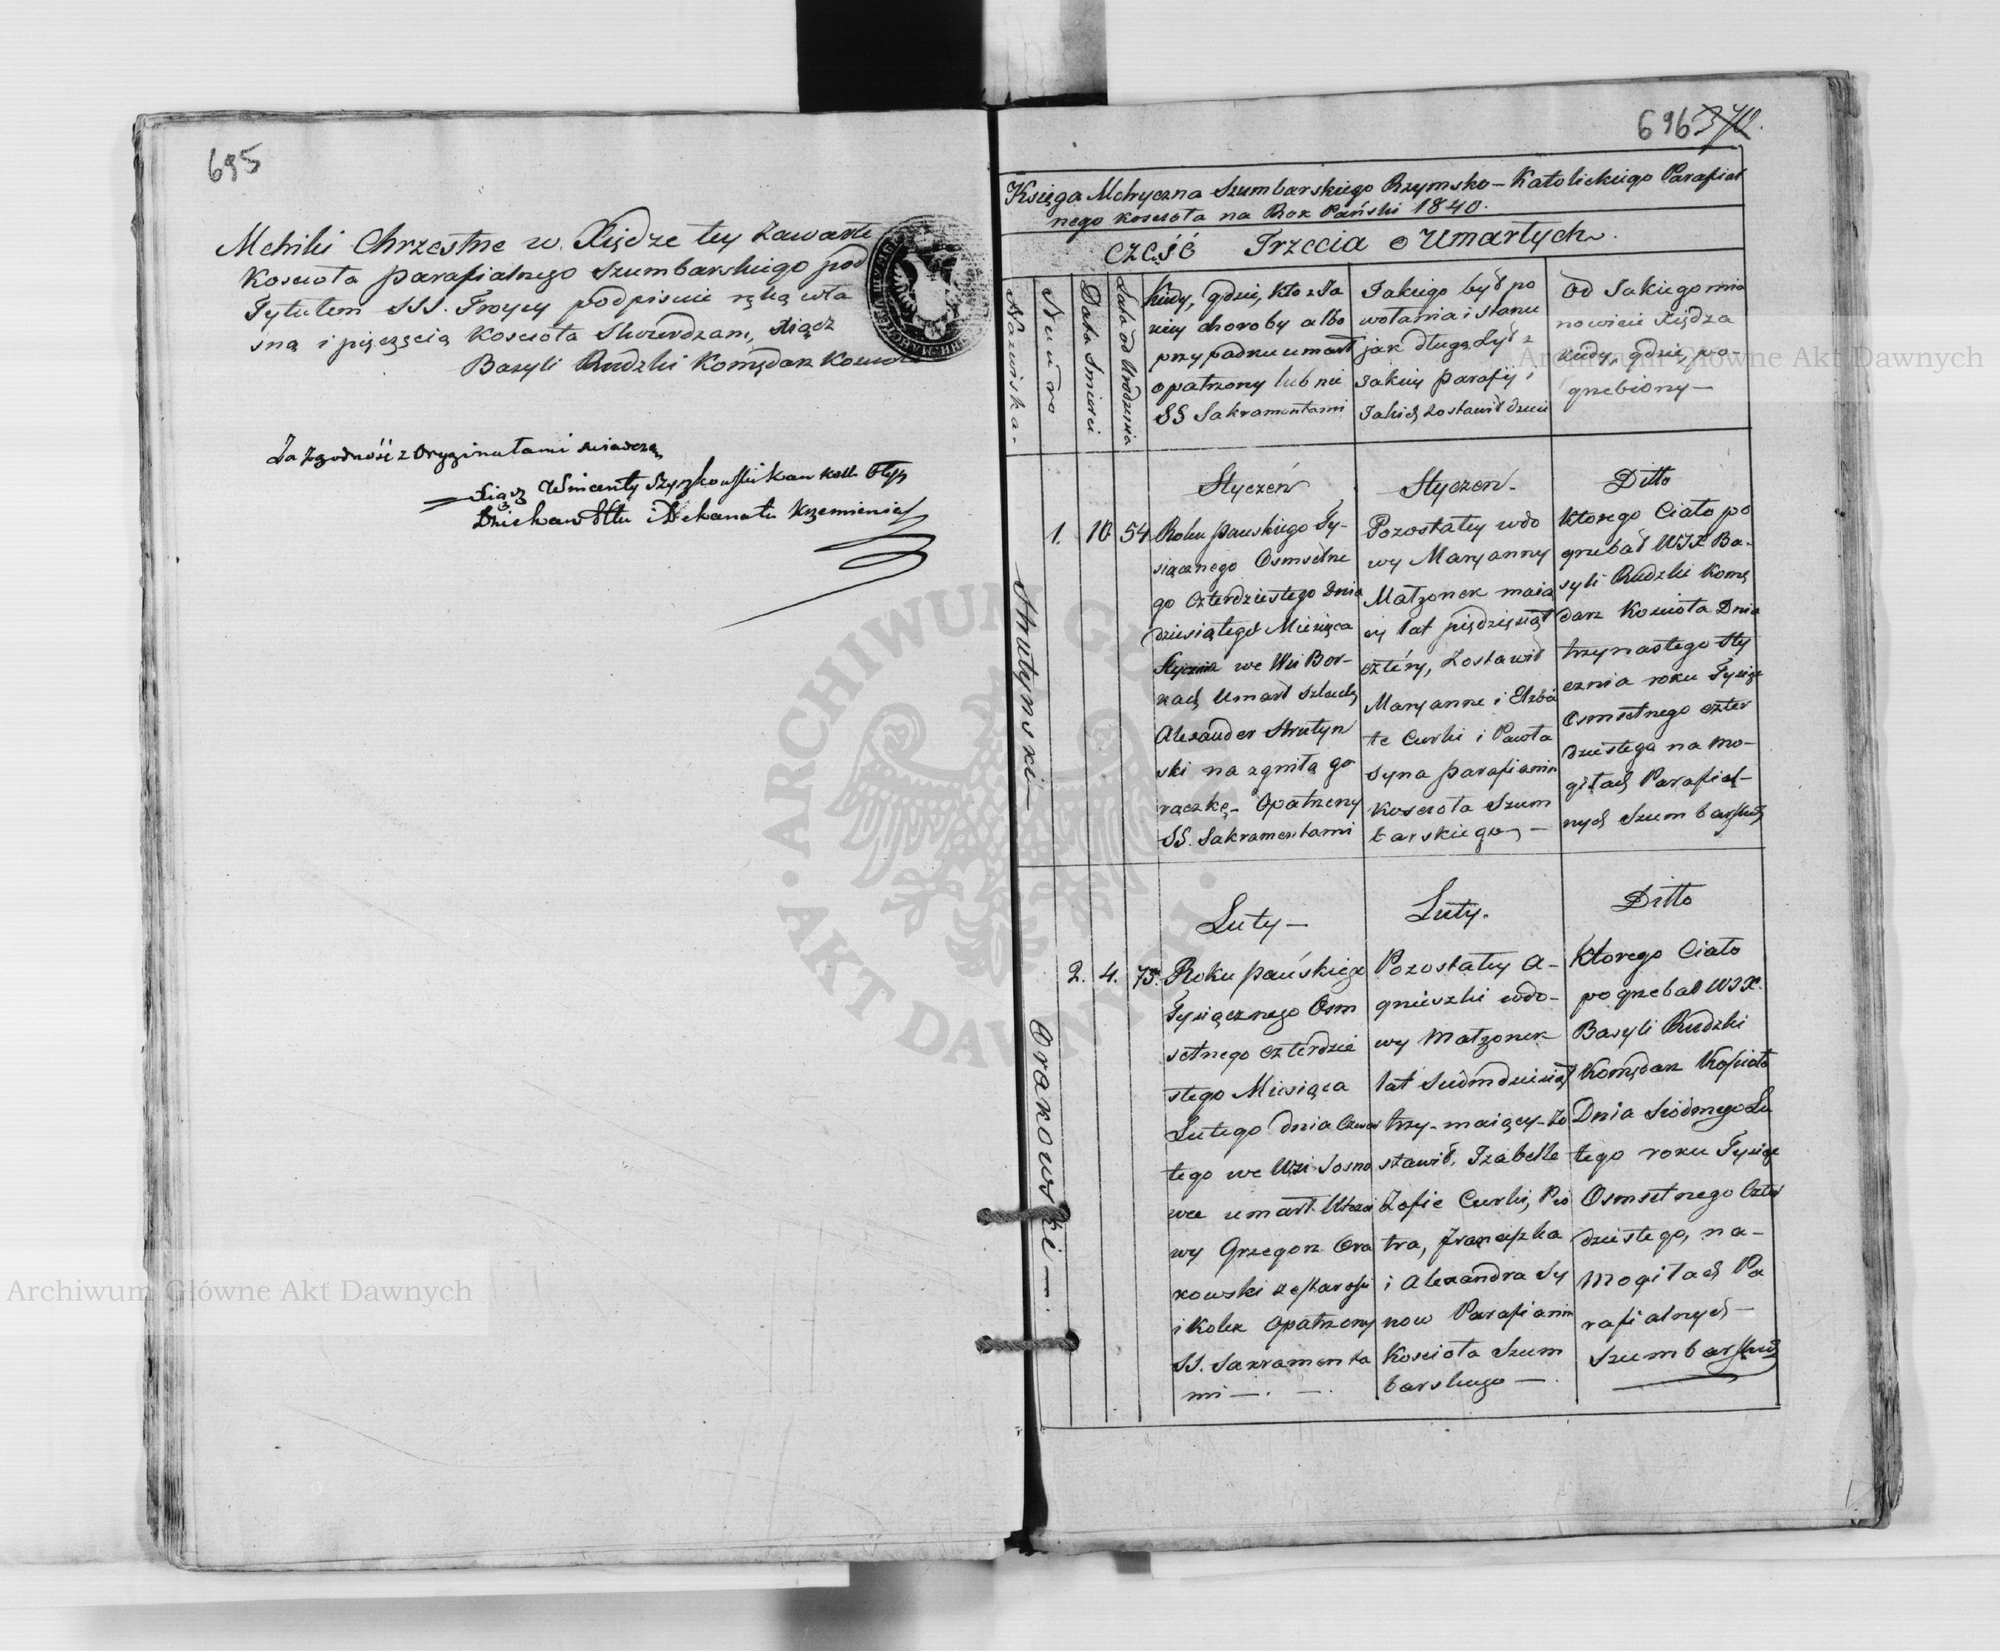 695
Metriki Chrzestne w Xiędze tey Zawarte
Kościoła parafialnego Szumbarskiego pod
Tytułem SSS. Troycy podpisuie ręką wła
sną i pięczęcią Kościoła Stwierdzam, Xiądz
Bazyli Rudzki Komędarz Kościoła
Za Zgodność z Oryginałami swiadczą
Xiądz Wincenty Szyszkowski Kan Koll Ołyk
Dziekan Dekanatu Krzemieniec
696 370.
Księga Metryczna Szumbarskiego Rzymsko-Katolickiego Parafial
nego kościoła na Rok Pański 1840.
CZĘŚĆ Trzecia o Umarłych.
Nazwiska
Numero
Data Smierci
Lata od Urodzenia
Kiedy, gdzie, kto z Ja
kiey choroby albo
przypadku umarł
opatrzony lub nie
SS Sakramentami
Jakiego był po
wołania i stanu
jak długo żył z
Jakiey Parafij i
Jakich zostawił dzieci
Od Jakiego mia
nowicie Xiędza
kiedy, gdzie, po-
grzebiony—
Strutynski—
1.
10
54
Styczeń
Roku Pańskiego Ty-
siącznego Osmsetne
go Czterdziestego Dnia
dziesiątego Miesiąca
Stycznia we Wsi Bor-
kach Umarł Szlachc
Alexander Strutyn
ski na zgniłą go
rączkę- Opatrzony
SS. Sakramentami
Styczeń-
Pozostałey wdo
wy Maryanny
Małżonek maią
cy lat pięćdziesiąt
cztéry, Zostawił
Maryanne i Elżbie
te Curki i Pawła
Syna Parafianin
Kościoła Szum
barskiego—
Ditto
Ktorego Ciało po
grzebał WJX Ba-
zyli Rudzki Komę
darz Kościoła Dnia
trzynastego Sty
cznia roku Tysięc
Osmsetnego czter
dziestego na mo-
giłach Parafial-
nych Szumbarskich
Orakowski—.
2.
4.
73.
Luty—
Roku Pańskiego
Tysiącznego Osm
setnego czterdzie
stego Miesiąca
Lutego dnia Czwar
tego we Wsi Sosno
wce umarł Uczci
wy Grzegorz Ora
kowski ze starości
i kolek Opatrzony
SS. Sakramenta
mi—.—.
Luty.
Pozostałey A-
gnieszki wdo-
wy Małżonek
lat Siedmdziesiąt
trzy-maiący-Zo
stawił, Izabelle
Zofie Curki, Pio
tra, Franciszka
i Alexandra Sy
now Parafianin
Kościoła Szum
barskiego—.
Ditto
Ktorego Ciało
pogrzebał WJX.
Bazyli Rudzki
Komędarz Kościoła
Dnia Siódmego Lu
tego roku Tysięc
Osmsetnego Czter
dziestego, na-
Mogiłach Pa
rafialnych—
Szumbarskich
Archiwum Główne Akt Dawnych
Archiwum Główne Akt Dawnych
ARCHIWUM GŁÓWNE · AKT DAWNYCH ·